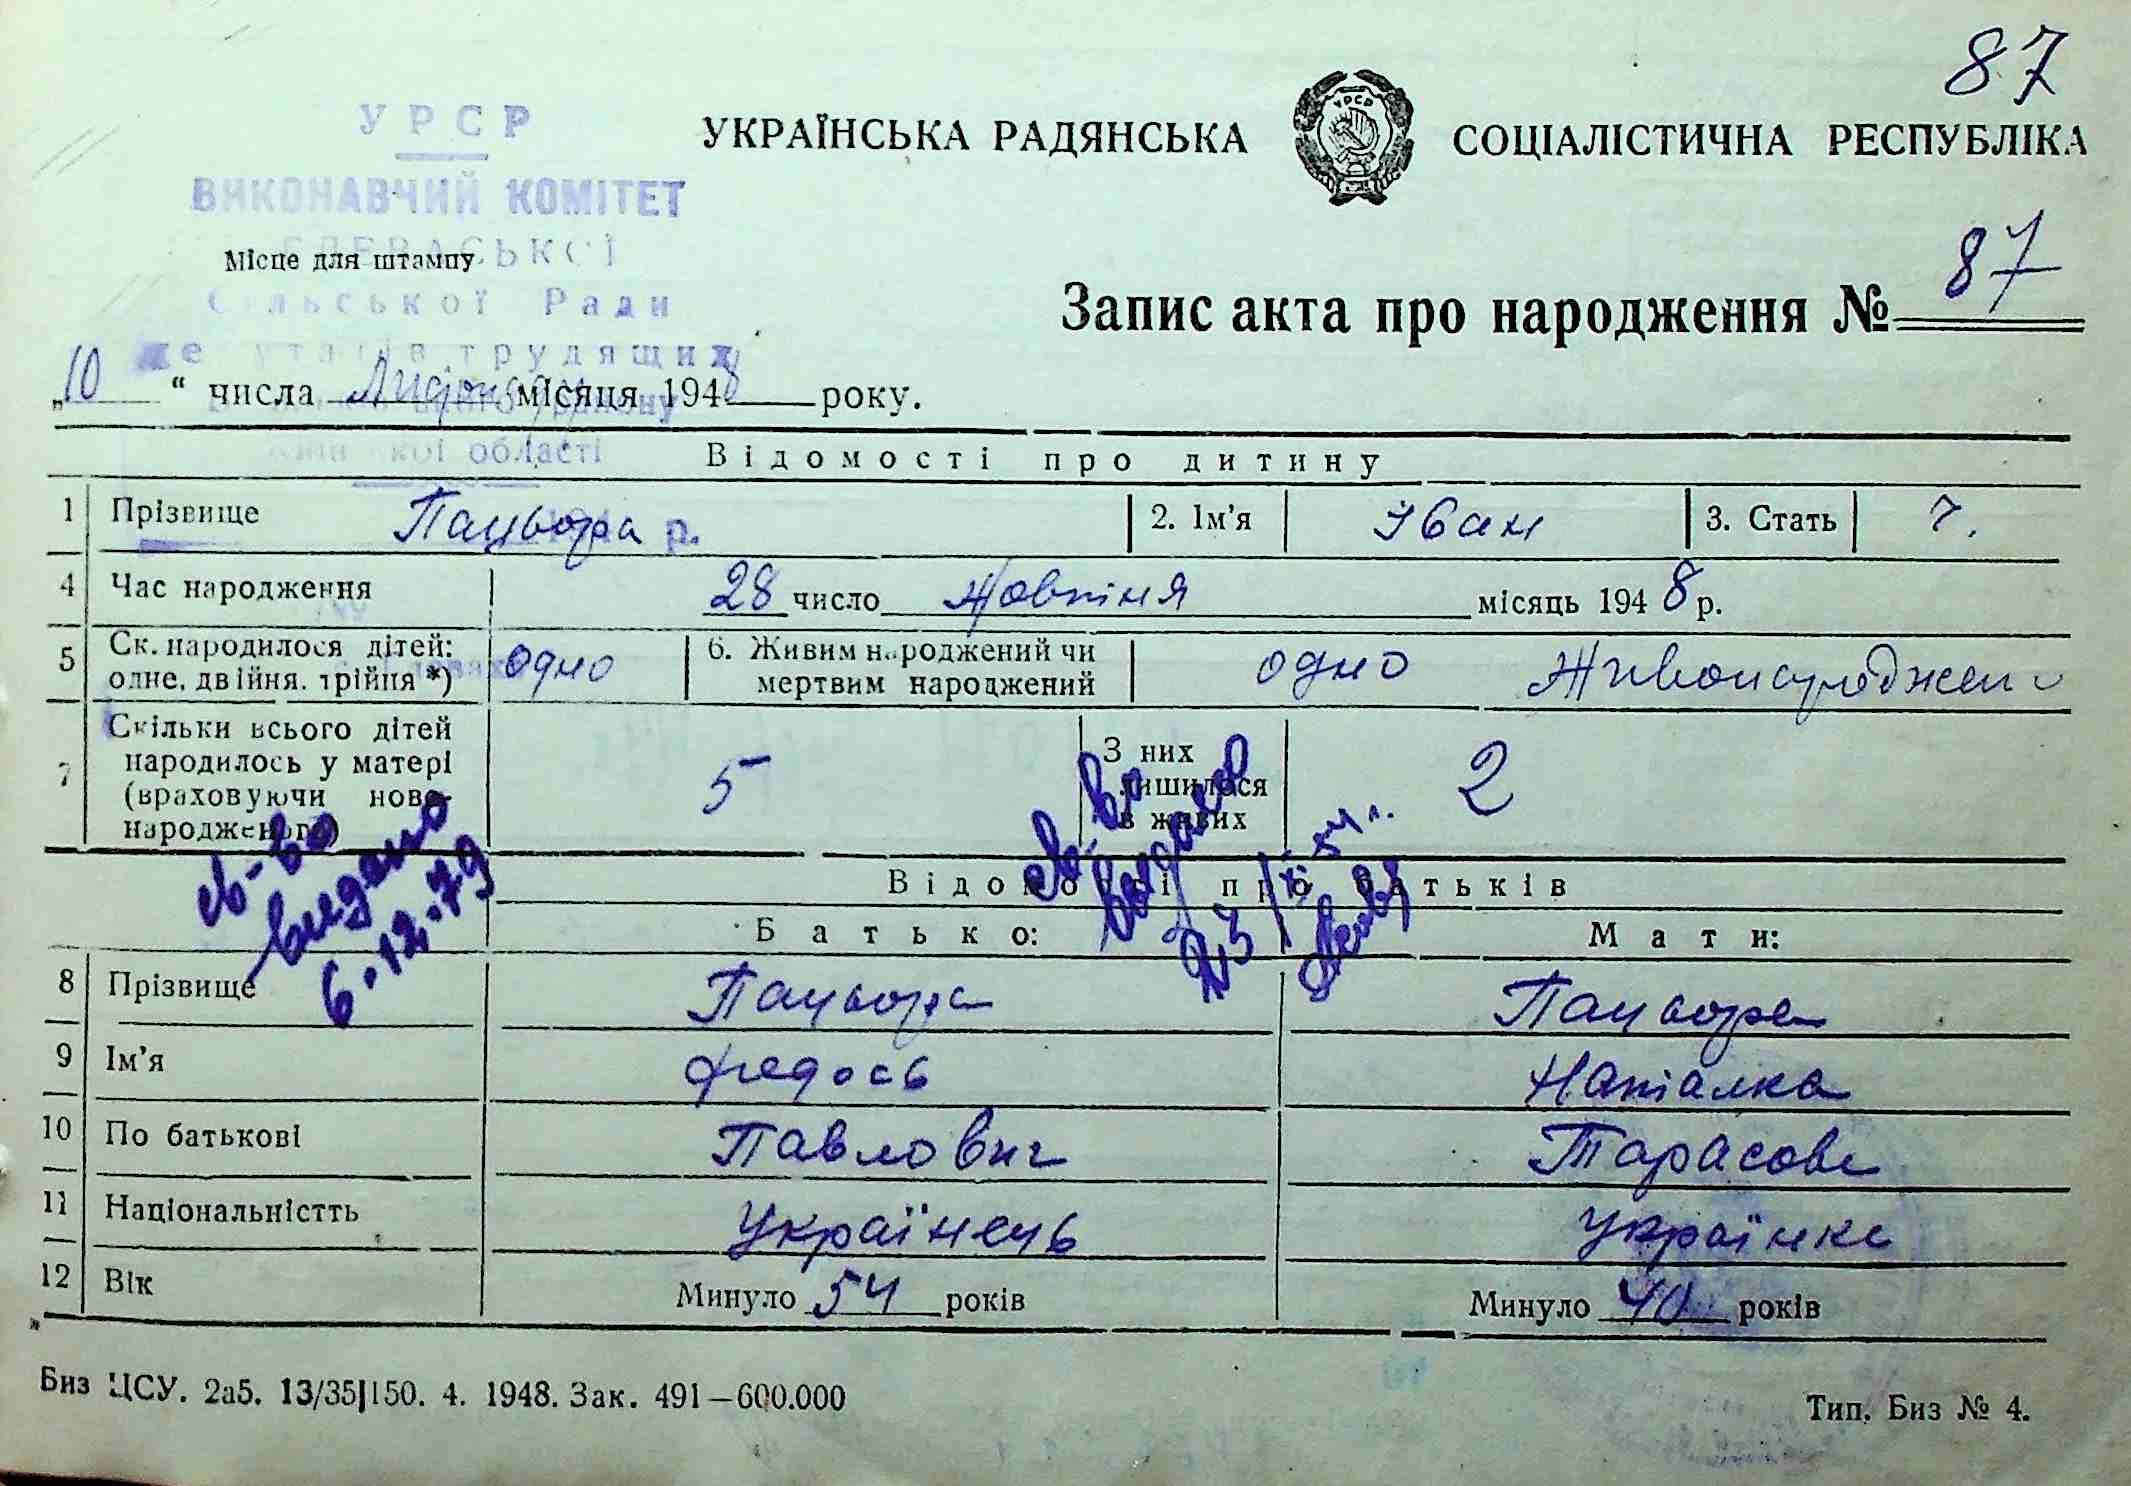 87
УРСР
УКРАЇНСЬКА РАДЯНСЬКА СОЦІАЛІСТИЧНА РЕСПУБЛІКА
ВИКОНАВЧИЙ КОМІТЕТ
Місце для штампу
Сільської Ради
Запис акта про народження № 87
депутатів трудящих
„10“ числа Листопаду місяця 1948 року.
області
Відомості про дитину
1 Прізвище Пацьора р. 2. Ім'я Іван 3. Стать ч.
4 Час народження 28 число Жовтня місяць 1948 р.
5 Ск. народилося дітей: одно 6. Живим народжений чи одно
одне, двійня, трійня *) мертвим народжений
7 Скільки всього дітей народилось у матері (враховуючи ново- народженого) 5 З них лишилося в живих 2
св-во видано 6.12.79
св-во видано 23
Відомості про батьків
Батько: Мати:
8 Прізвище Пацьора Пацьора
9 Ім'я Федось Наталка
10 По батькові Павлович Тарасова
11 Національністть Українець Українка
12 Вік Минуло 54 років Минуло 40 років
Биз ЦСУ. 2а5. 13/35|150. 4. 1948. Зак. 491—600.000 Тип. Биз № 4.